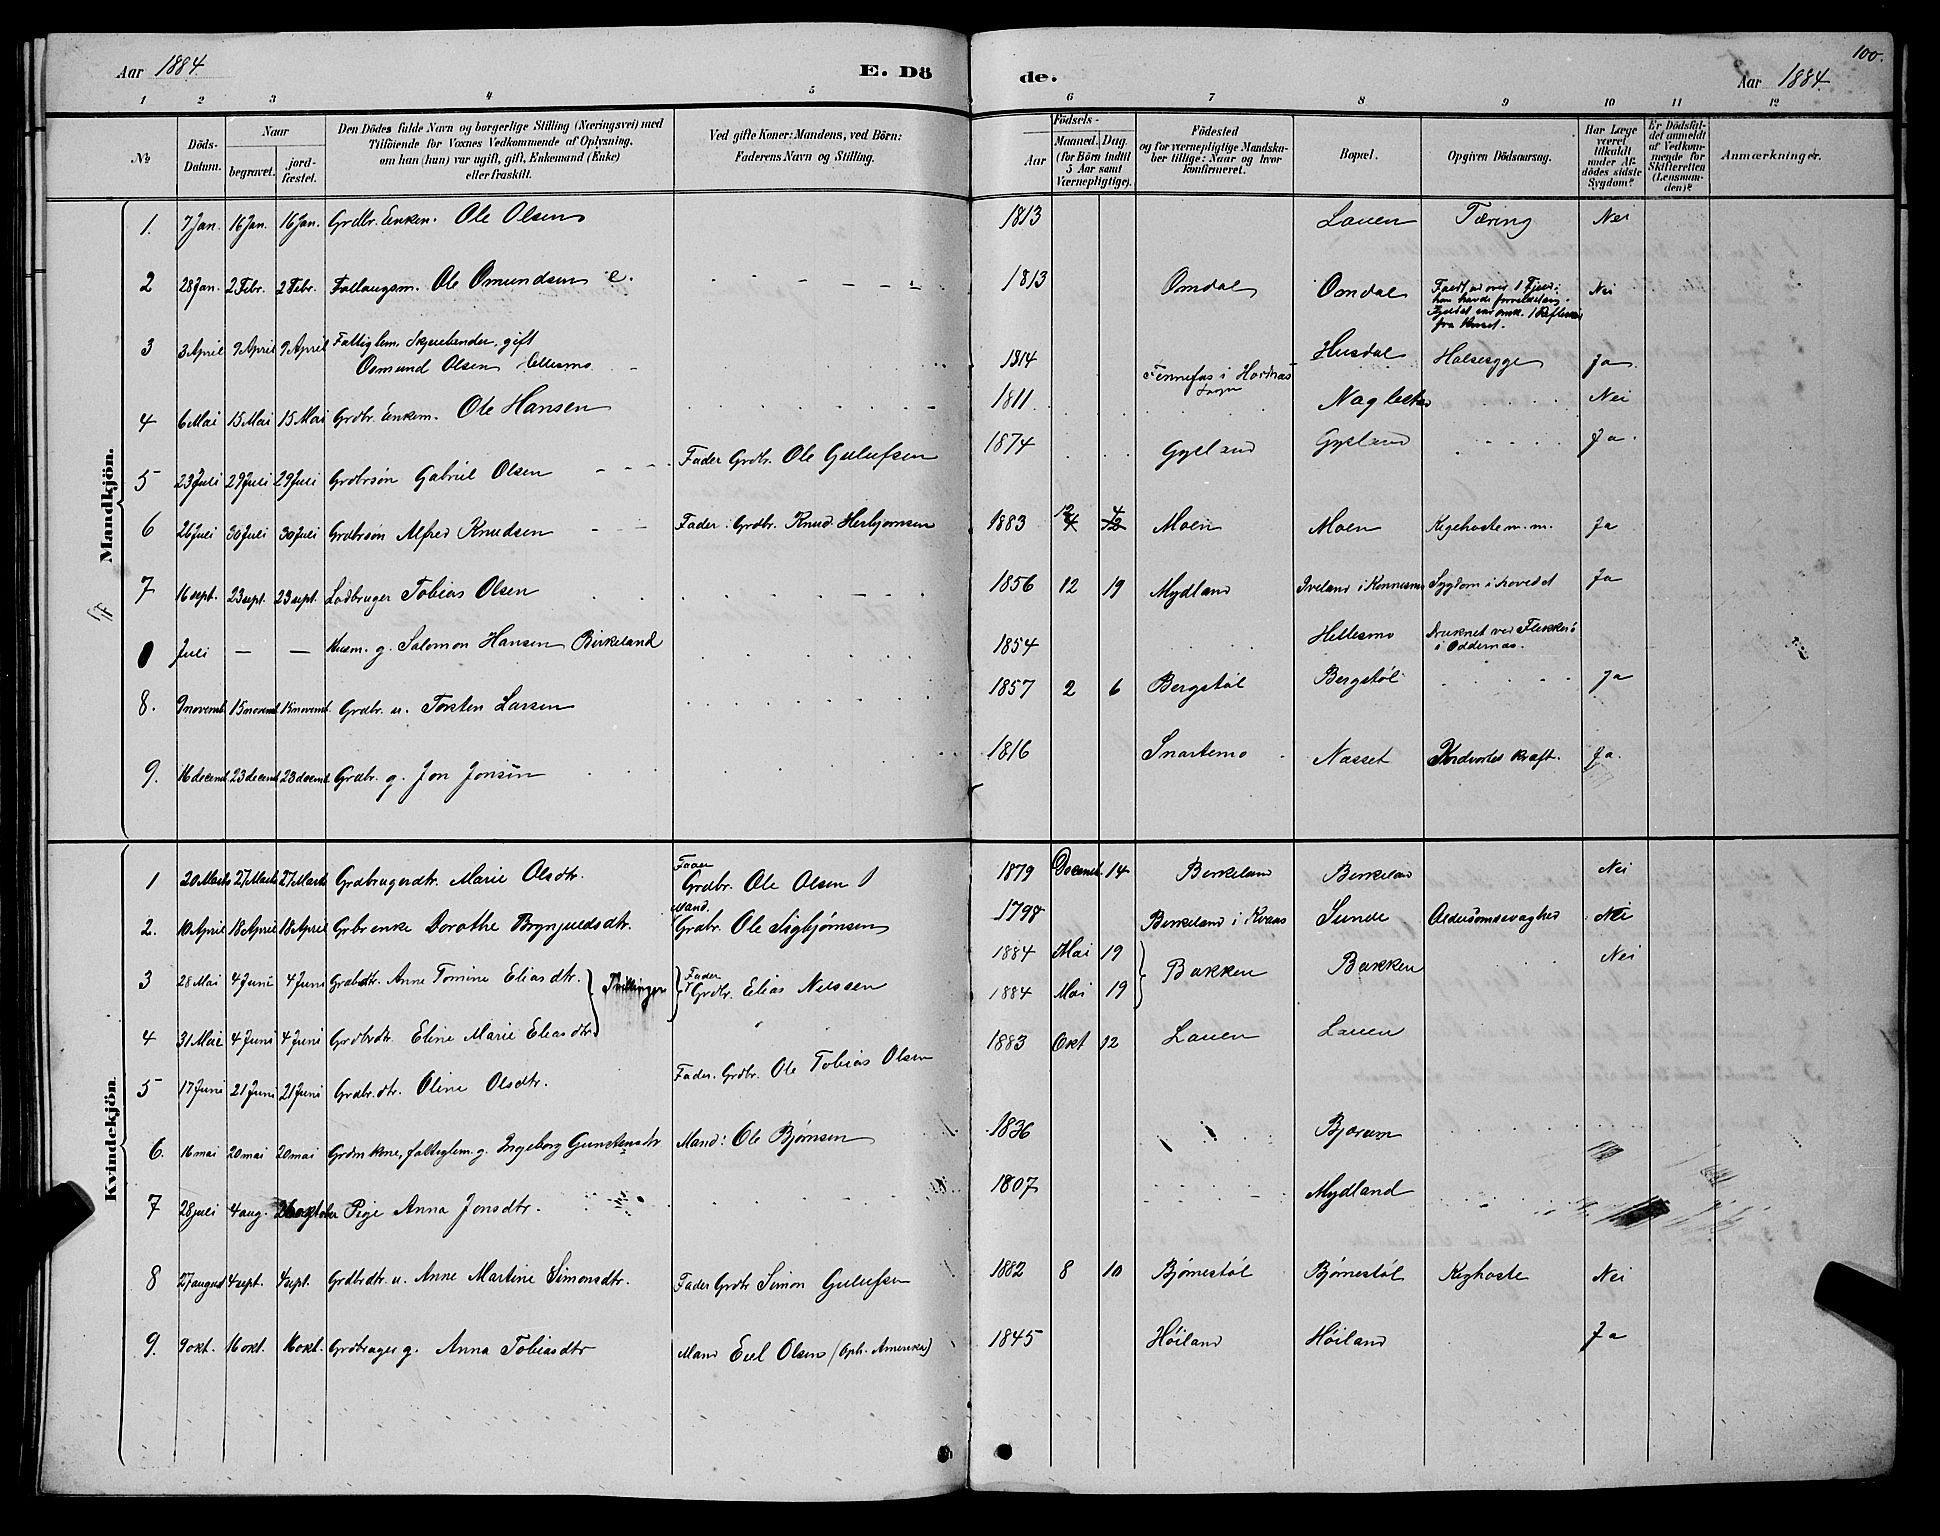 Aar 1884.
E. Dö
de.
Aar 1884.
100.
1 2 3 4 5 6 7 8 9 10 11 12
No
Döds-
Datum.
Naar
begravet.
jord-
fæstet.
Den Dödes fulde Navn og borgerlige Stilling (Næringsvei) med
Tilföiende for Voxnes Vedkommende af Oplysning,
om han (hun) var ugift, gift, Enkemand (Enke)
eller fraskilt.
Ved gifte Koner: Mandens, ved Börn:
Faderens Navn og Stilling.
Födsels-
Aar
Maaned. Dag.
(for Börn indtil
5 Aar samt
Værnepligtige).
Födested
og for værnepligtige Mandska-
ber tillige: Naar og hvor
konfirmeret.
Bopæl.
Opgiven Dödsaarsag.
Har Læge
været
tilkaldt
under Af-
dödes sidste
Sygdom?
Er Dödsfal-
det anmeldt
af Vedkom-
mende for
Skifteretten
(Lensman-
den)?
Anmærkninger.
Mandkjön.
1. 7 Jan. 16 Jan. 16 Jan. Grdbr. Enkem. Ole Olsen 1813 Lauen Tæring Nei
2 28 Jan. 2 Febr. 2 Febr. Ole Omundsen e. 1813 Omdal Omdal Nei
fra Huset.
3 3 April 9 April 9 April Fattiglem, gift
Osmund Olsen 1814 i Sogn Husdal Halsesyge Ja
4 6 Mai 15 Mai 15 Mai Grdbr. Enkem. Ole Hansen 1811 Naglestad Nei
5 23 Juli 29 Juli 29 Juli Grdbrsøn Gabriel Olsen Fader Grdbr. Ole Gulufsen 1874 Gysland Gysland Ja
6 26 Juli 30 Juli 30 Juli Grdbrsøn Alfred Knudsen Fader: Grdbr. Knud Herbjørnsen 1883 12 4 Moen Moen Kighoste m. m. Ja
7 16 sept. 23 sept. 23 sept. Ladbruger Tobias Olsen 1856 12 19 Mydland Iveland i Konnesmo Sygdom i hovedet Ja
Juli — — Husm. g. Salomon Hansen Birkeland 1854 Hellesmo Druknet ved Flekkerö
i Oddernæs.
8. 9 novemb 15 novemb 15 novemb. Grdbr. u. Torsten Larsen 1857 2 6 Bergstøl Bergstøl Ja
9. 16 decemb 23 decemb 23 decemb. Grdbr. g. Jon Jonsen 1816 Snartemo Næsset kræft. Ja.
Kvindekjön.
1 20 Marts 27 Marts 27 Marts Grdbrugerdtr. Marie Olsdtr. Fader
Grdbr. Ole Olsen 1879 Decemb. 14 Birkeland Birkeland Nei
2. 10 April 18 April 18 April Grbr enke Dorothe Brynjuldsdtr. Mand.
Grdbr. Ole Sigbjørnsen 1798 Birkeland i Kvaas Sunde Alderdomssvaghed Nei
3 28 Mai 4 Juni 4 Juni Grdbrdtr. Anne Tomine Eliasdtr. Tvillinger Fader
Grdbr. Elias Nilssen 1884 Mai 19 Bakken Bakken Nei
1884 Mai 19
4 31 Mai 4 Juni 4 Juni Grdbrdtr. Eline Marie Eliasdtr.
5 17 Juni 21 Juni 21 Juni Grdbr.dtr. Oline Olsdtr. Fader. Grdbr. Ole Tobias Olsen 1883 Okt 12 Lauen Lauen
6. 16 mai 20 mai 20 mai fattiglem. g. Ingeborg Gunstensdtr Mand: Ole Bjørnsen 1836 Bjørum
7 28 juli 4 aug. 26 oktober Pige Anna Jonsdtr. 1807 Mydland
8 27 august 4 sept. 4 sept. Grdbrdtr. u. Anne Martine Simonsdtr. Fader Grdbr Simon Gulufsen 1882 8 10 Bjørnestøl Bjørnestøl Kighoste Nei
9. 9 okt. 16 okt. 16 okt. Grdbruger g. Anna Tobiasdtr Mand Eiel Olsen (Oph. Amerika) 1845 Høiland Høiland Ja